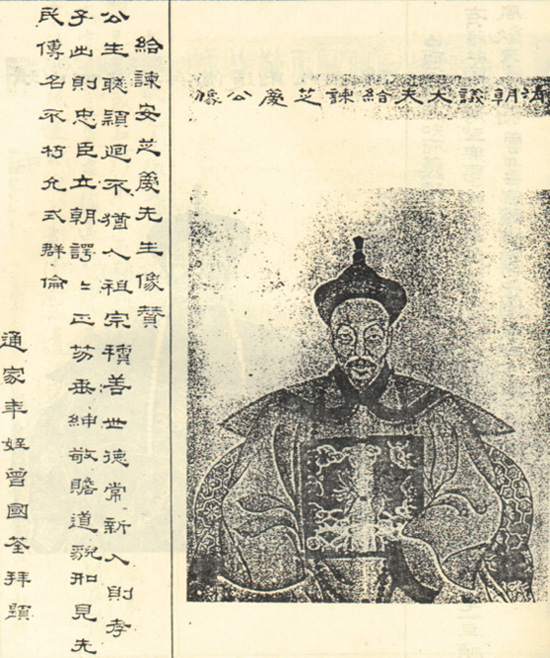 清朝議大夫給諫芝慶公像
給諫安芝慶先生像贊
公生聰穎迥不猶人祖宗積善世德常新入則孝
子出則忠臣立朝諤〻正笏垂紳敬瞻道貌如見先
民傳名不朽允式群倫
通家年姪曾國荃拜題